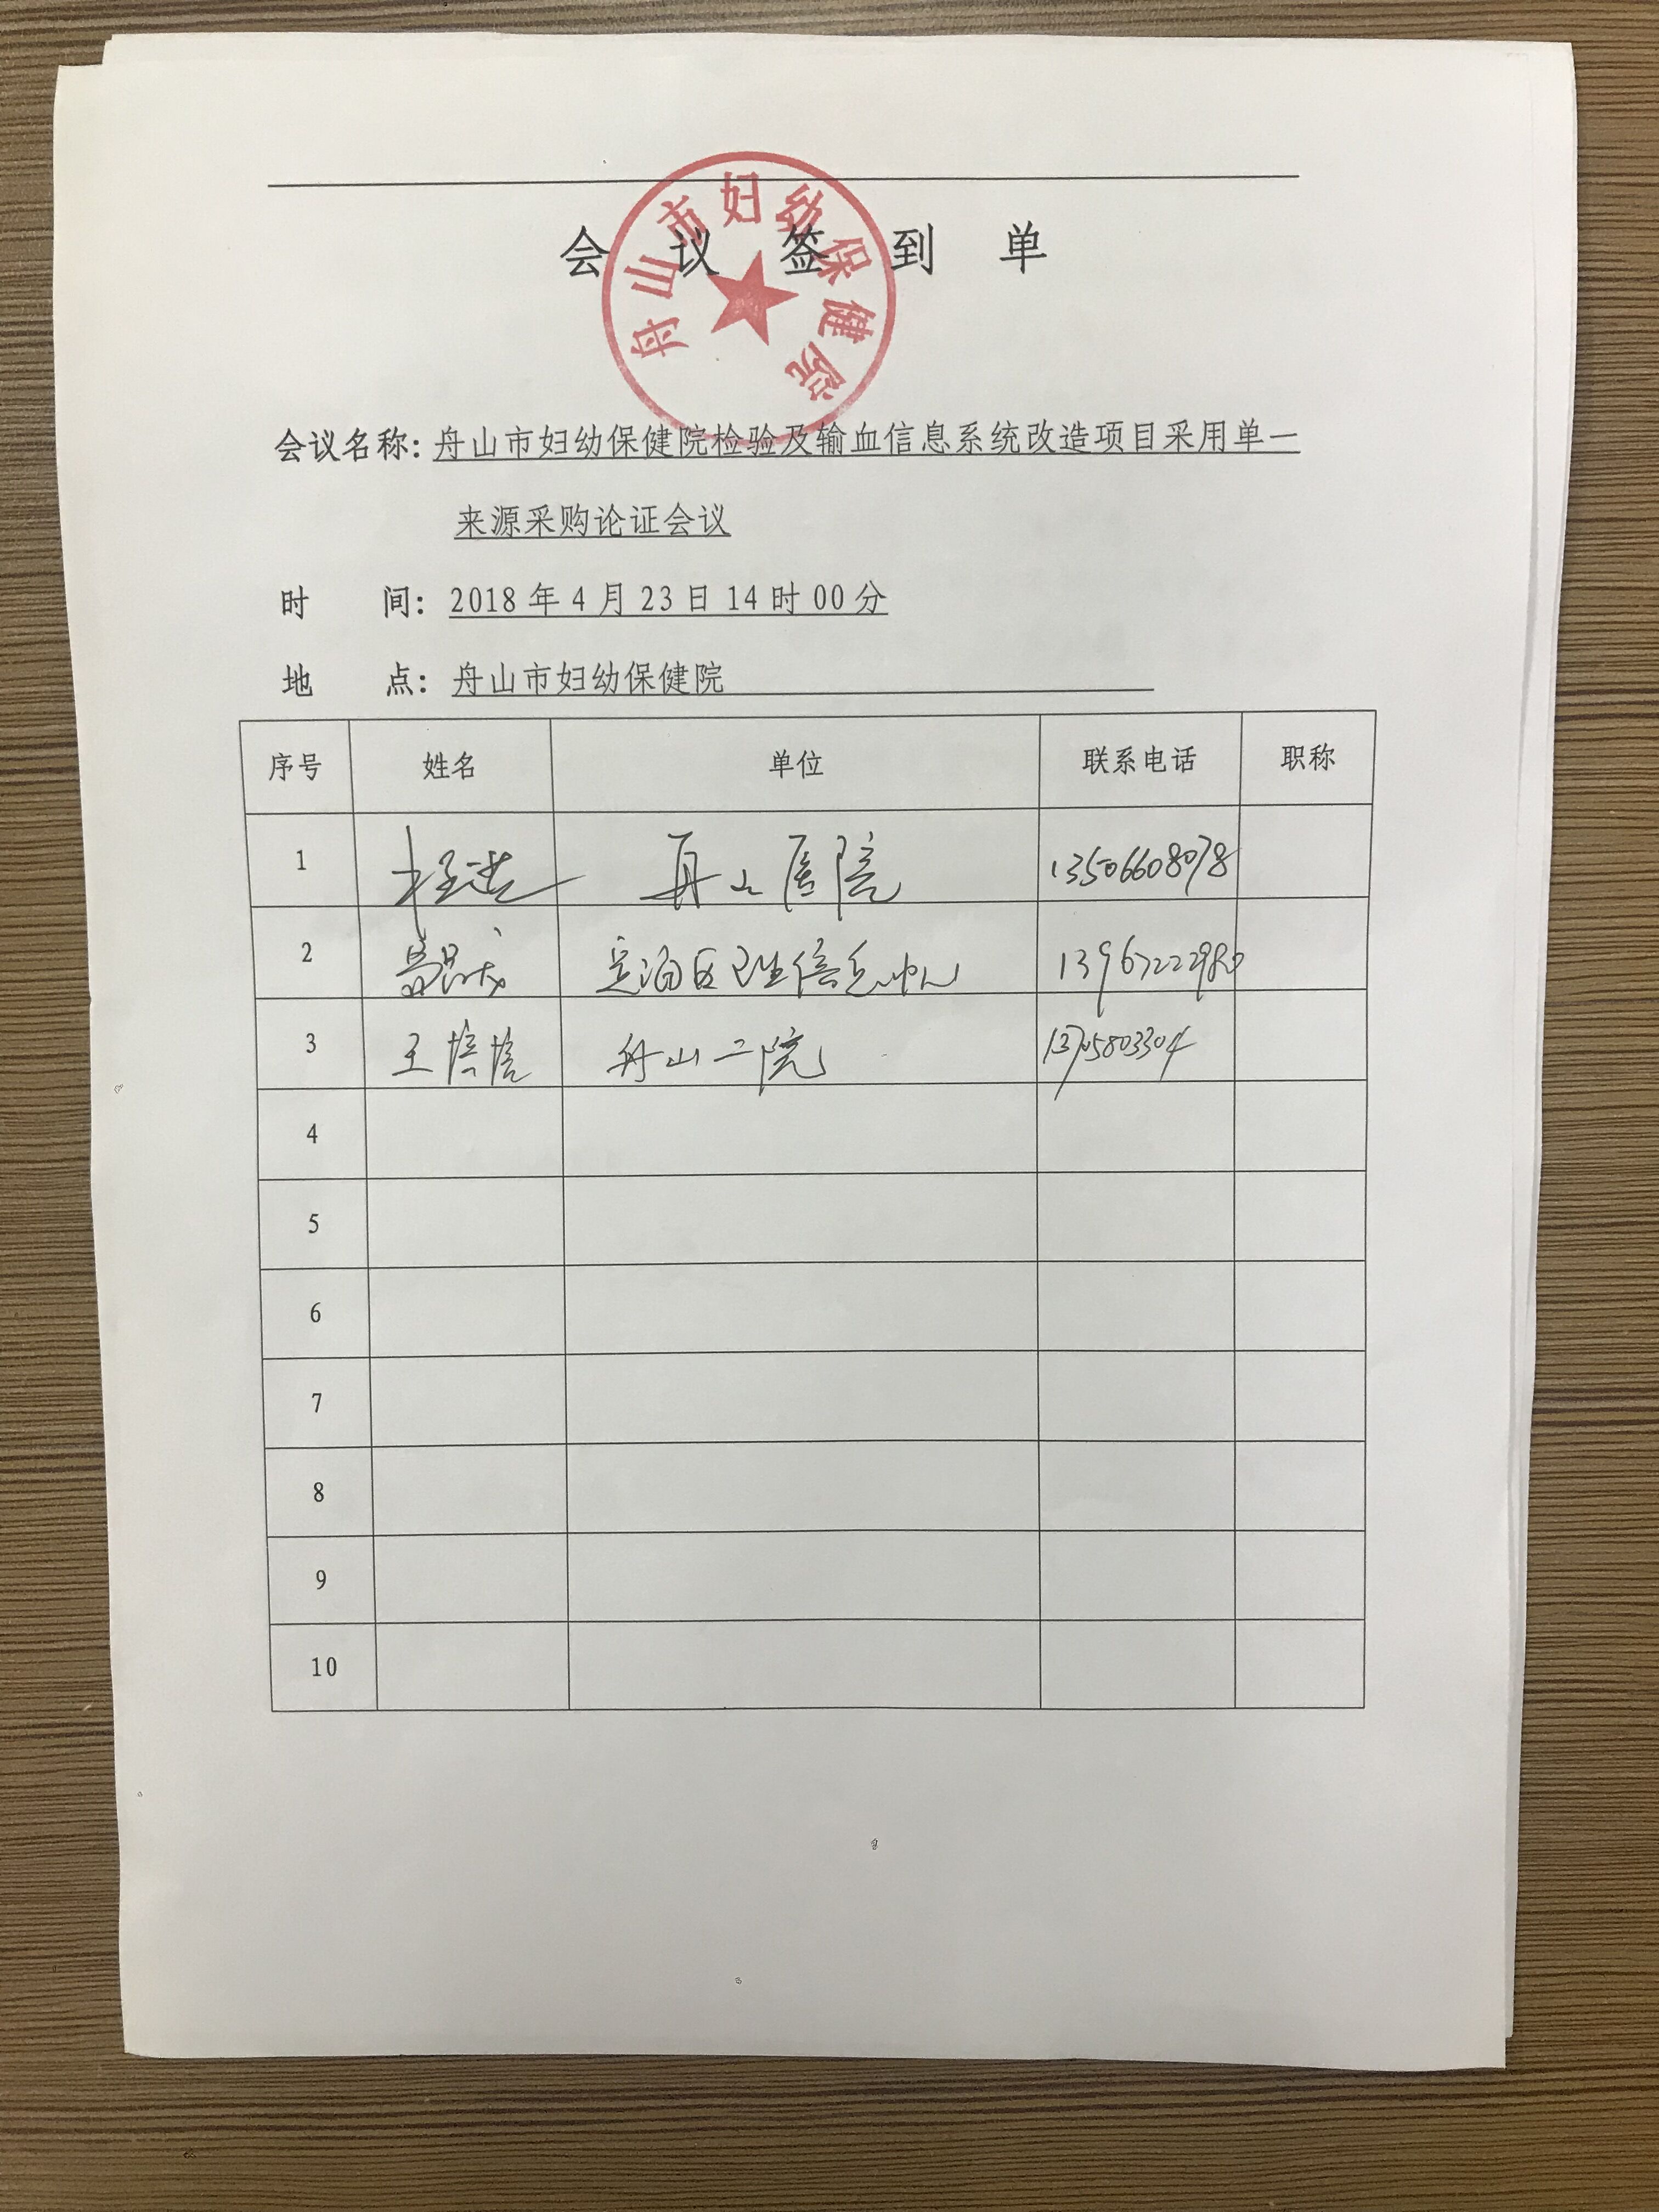 舟山市妇幼保健院
会议签到单
会议名称：舟山市妇幼保健院检验及输血信息系统改造项目采用单一
来源采购论证会议
时 间：2018年4月23日14时00分
地 点：舟山市妇幼保健院
序号 姓名 单位 联系电话 职称
1 舟山医院 13506608078
2 定海区卫生信息中心 13967222980
3 王培培 舟山二院 13705803304
4
5
6
7
8
9
10